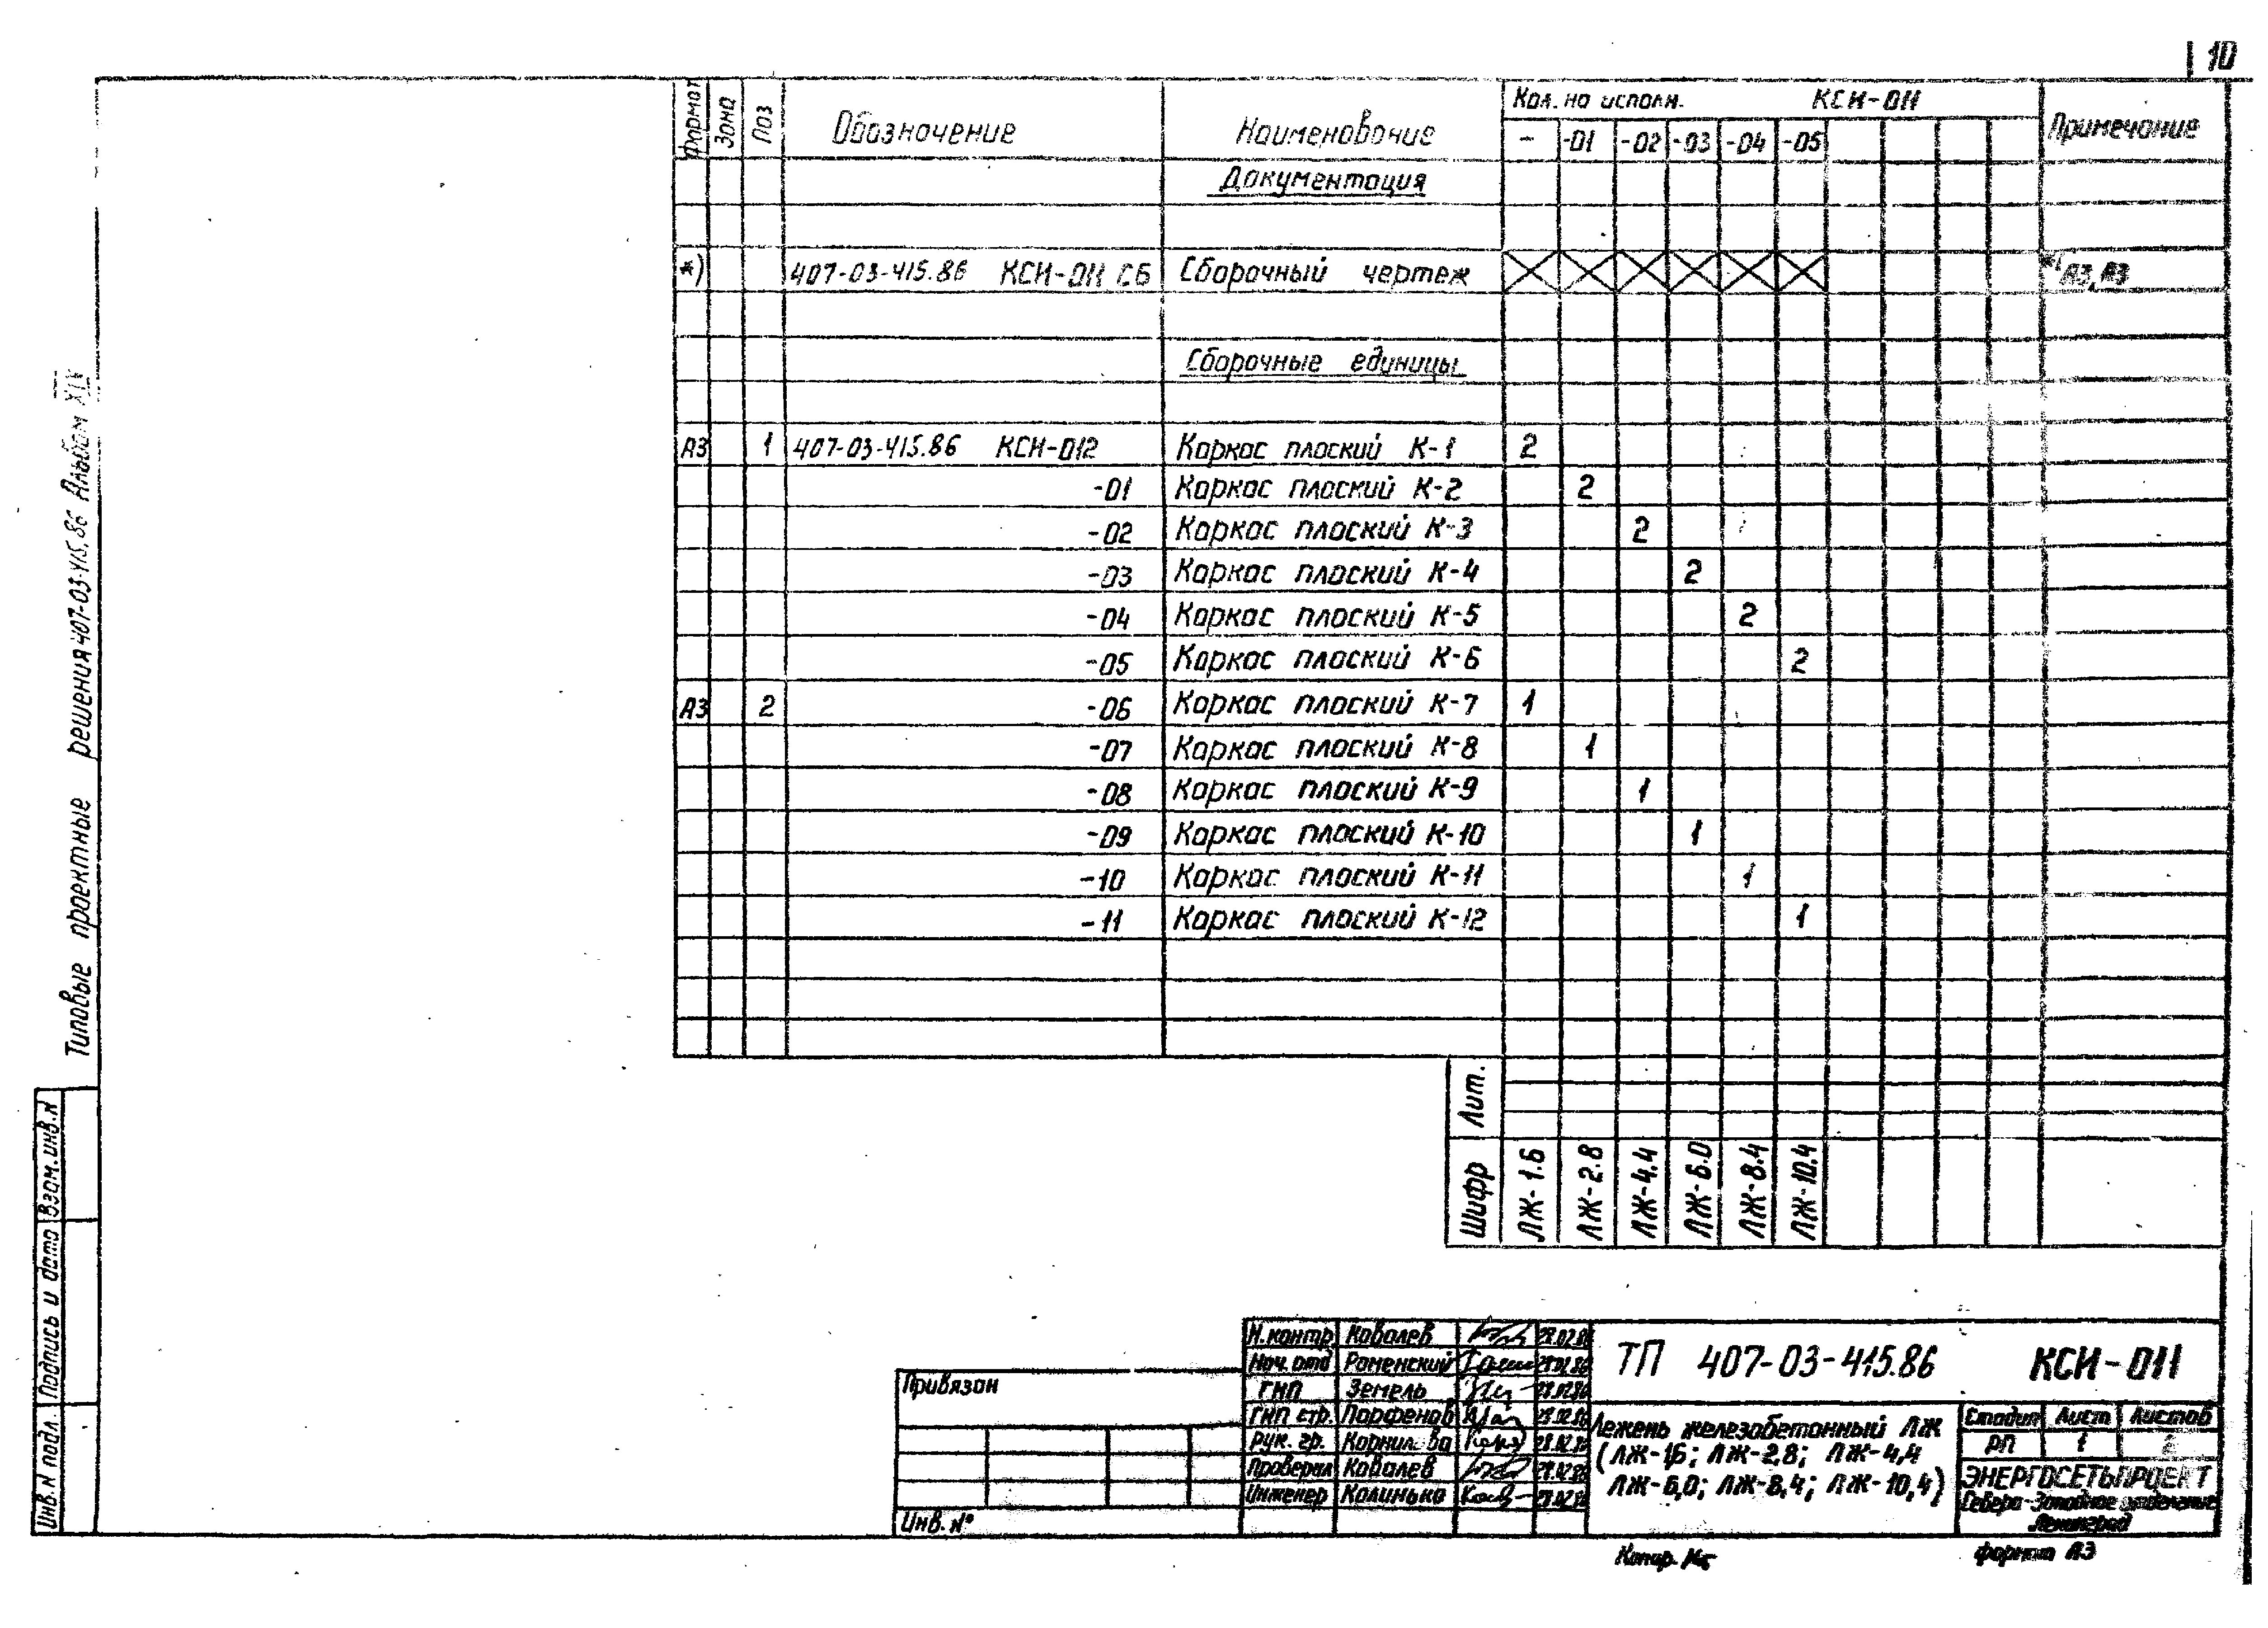 10
Формат Зона Поз Обозначение Наименование Кол. на исполн. КСИ-011 Примечание
- -01 -02 -03 -04 -05
Документация
*) 407-03-415.86 КСИ-011 СБ Сборочный чертеж *) А3, А3
Сборочные единицы
А3 1 407-03-415.86 КСИ-012 Каркас плоский К-1 2
-01 Каркас плоский К-2 2
-02 Каркас плоский К-3 2
-03 Каркас плоский К-4 2
-04 Каркас плоский К-5 2
-05 Каркас плоский К-6 2
А3 2 -06 Каркас плоский К-7 1
-07 Каркас плоский К-8 1
-08 Каркас плоский К-9 1
-09 Каркас плоский К-10 1
-10 Каркас плоский К-11 1
-11 Каркас плоский К-12 1
Лит.
Шифр ЛЖ-1.6 ЛЖ-2.8 ЛЖ-4.4 ЛЖ-6.0 ЛЖ-8.4 ЛЖ-10.4
Типовые проектные решения 407-03-415.86 Альбом XIV
Взам. инв. N
Подпись и дата
Инв. N подл.
Привязан
Инв. N°
Н. контр. Ковалев 28.02.86
Нач. отд Роменский 28.02.86
ГИП Земель 28.02.86
ГИП стр. Парфенов 28.02.86
Рук. гр. Корнилова 28.02.86
Проверил Ковалев 28.02.86
Инженер Калинько 28.02.86
ТП 407-03-415.86 КСИ-011
Лежень железобетонный ЛЖ
(ЛЖ-1,6; ЛЖ-2,8; ЛЖ-4,4
ЛЖ-6,0; ЛЖ-8,4; ЛЖ-10,4)
Стадия Лист Листов
РП 1
ЭНЕРГОСЕТЬПРОЕКТ
Северо-Западное отделение
Ленинград
Копир.
формат А3